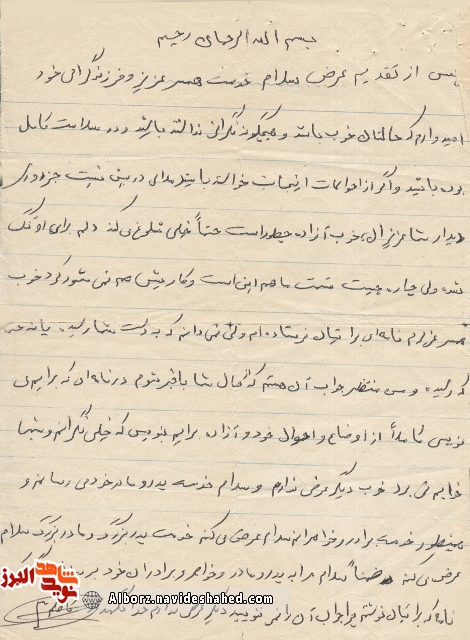 بسم الله الرحمان رحیم
پس از تقدیم عرض سلام خدمت همسر عزیز و فرزند گرامی خود
امیدوارم که حالتان خوب باشد و هیچگونه نگرانی نداشته باشید و در سلامت کامل
بوده باشید و اگر از احوالات اینجانب خواسته باشید ملالی در بین نیست جز دوری
دیدار شما عزیزان، خوب آزاده چطور است حتماً خیلی شلوغی می کند دلم برای او تنگ
شده ولی چاره چیست قسمت ما هم این است و کاریش هم نمی شود کرد خوب
همسر عزیزم نامه ای برایتان فرستاده ام ولی نمی دانم که بدست شما رسیده یا نه حتی
که رسیده و من منتظر جواب آن هستم که از حال شما باخبر شوم در نامه ای که برایم می
نویسی کاملاً از اوضاع و احوال خود و آزاده برایم بنویس که خیلی نگرانم و شبها
خوابم نمی برد خوب دیگر عرضی ندارم و سلام خدمت پدر و مادر خودم می رسانم و
همینطور خدمت برادر و خواهرانم سلام عرض می کنم خدمت پدربزرگ و مادربزرگ سلام
عرض می کنم ضمناً سلام مرا به پدر و مادر و خواهر و برادران خود
نامه که برایتان نوشتم جواب آن را می نویسید دیگر عرضی ندارم خدا نگهدار
نوید شاهد البرز
Alborz.navideshahed.com